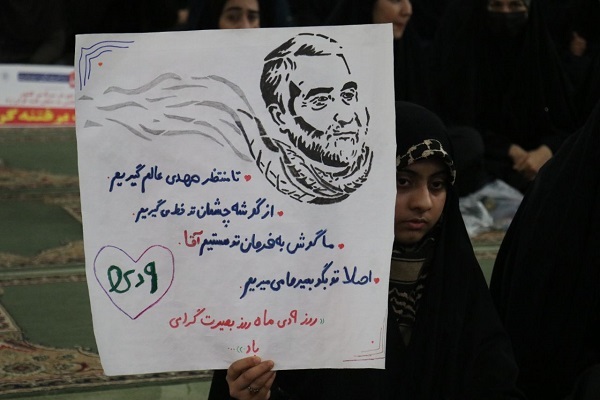 تا منتظر مهدی عالم گیریم.
از گوشه چشمان تو خط می گیریم.
ما گوش به فرمان تو هستیم آقا.
اصلا تو بگو بمیر ما می میریم.
۹ دی
« روز ۹ دی ماه روز بصیرت گرامی
باد »...